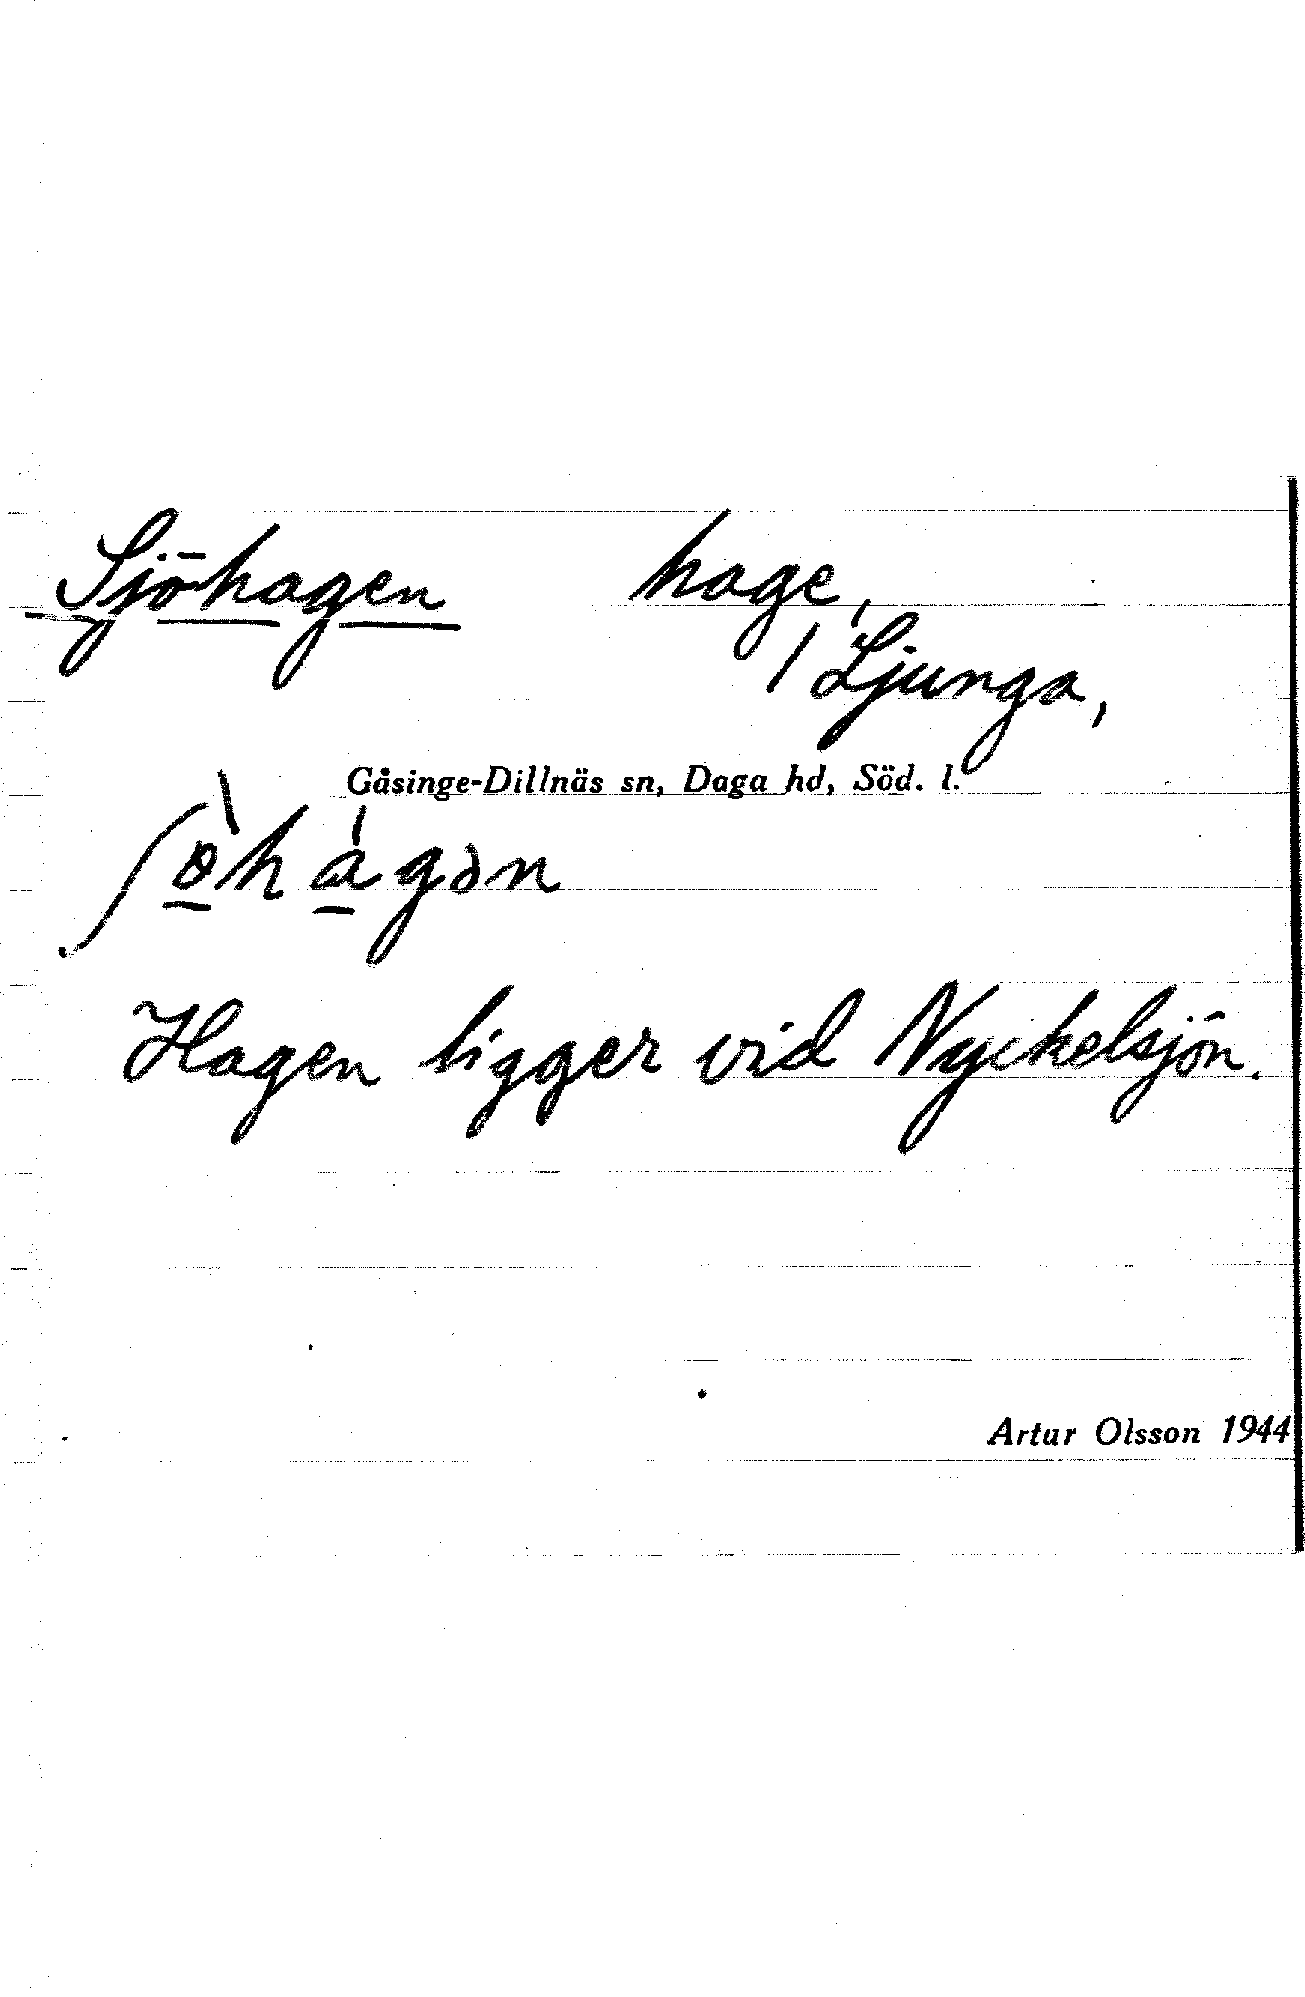 Sjöhagen hage,
/ Ljunga,
Gåsinge-Dillnäs sn, Daga hd, Söd. l.
ʃø̱̀ha̱̍gən
Hagen ligger vid Nyckelsjön.
Artur Olsson 1944